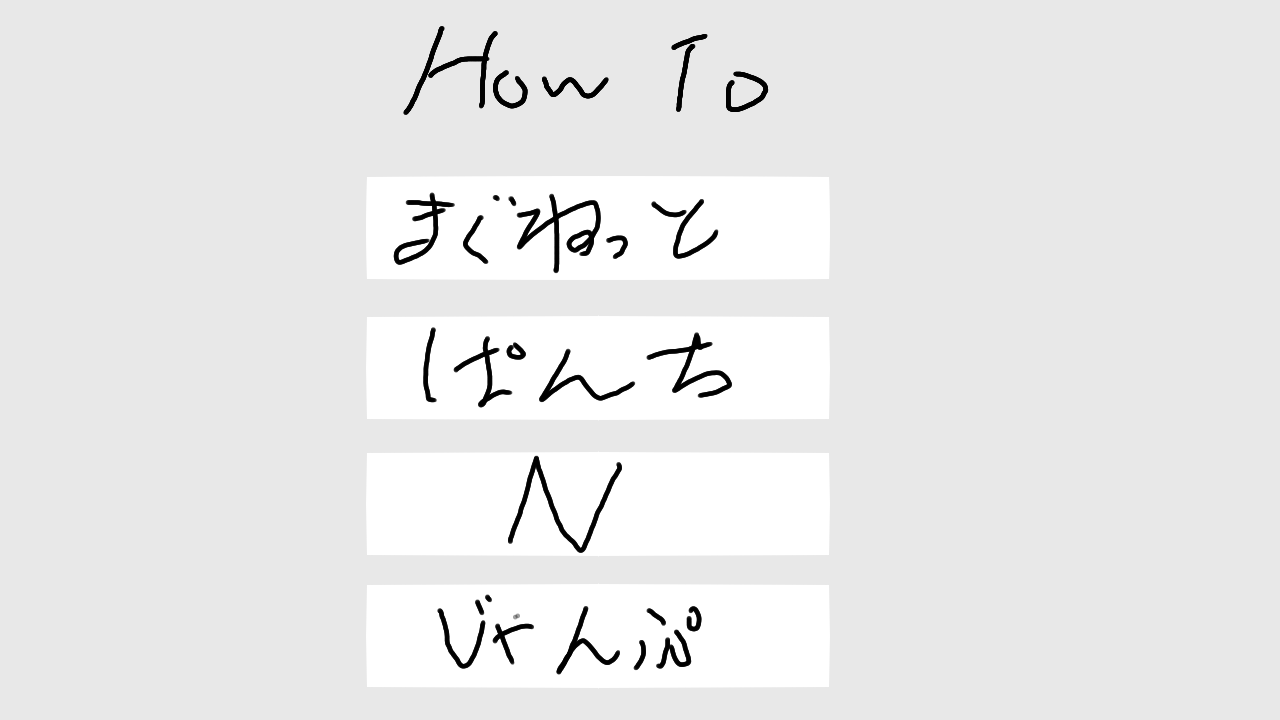 How To
まぐねっと
ぱんち
N
じゃんぷ